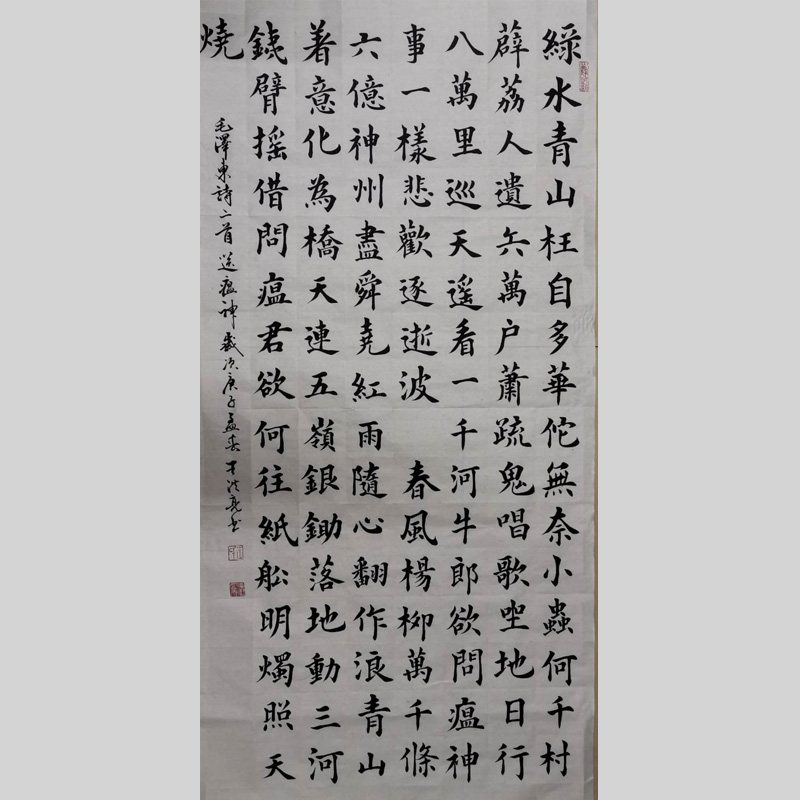 緑水青山枉自多華佗無奈小蟲何千村
薜荔人遺矢萬户蕭疏鬼唱歌坐地日行
八萬里巡天遙看一千河牛郎欲問瘟神
事一樣悲歡逐逝波 春風楊柳萬千條
六億神州盡舜堯紅雨隨心翻作浪青山
着意化為橋天連五嶺銀鋤落地動三河
銕臂摇借問瘟君欲何往紙舩明燭照天
燒
毛澤東詩二首送瘟神歲次庚子孟春